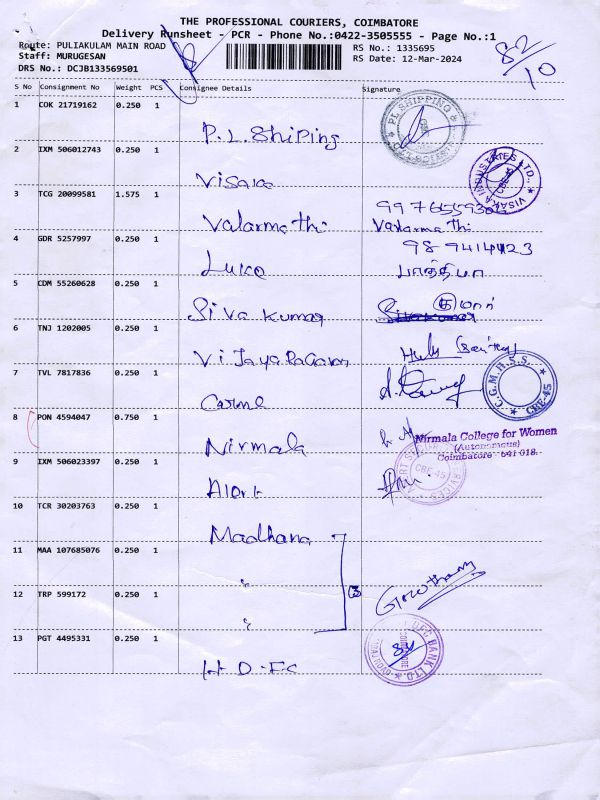 THE PROFESSIONAL COURIERS, COIMBATORE
Delivery Runsheet - PCR - Phone No.:0422-3505555 - Page No.:1
Route: PULIAKULAM MAIN ROAD
Staff: MURUGESAN
DRS No.: DCJB133569501
RS No.: 1335695
RS Date: 12-Mar-2024
82/10
S No Consignment No Weight PCS Consignee Details Signature
1 COK 21719162 0.250 1 P.L. Shiping PL SHIPPING
2 IXM 506012743 0.250 1 Visaka VISAKA INDUSTRIES LTD., CBE-45
3 TCG 20099581 1.575 1 Valarmathi Valarmathi
4 GDR 5257997 0.250 1 98 9414423
5 CDM 55260628 0.250 1 Siva Kumar குமார்
6 TNJ 1202005 0.250 1
7 TVL 7817836 0.250 1 Carmel C.G.M.H.S.S. CBE-45
8 PON 4594047 0.750 1 Nirmala Nirmala College for Women
(Autonomous)
Coimbatore - 641 018.
9 IXM 506023397 0.250 1 Alert CBE-45
10 TCR 30203763 0.250 1 Madhana
11 MAA 107685076 0.250 1 "
12 TRP 599172 0.250 1 " 3 Gowtham
13 PGT 4495331 0.250 1 HDFC HDFC BANK LTD. COIMBATORE